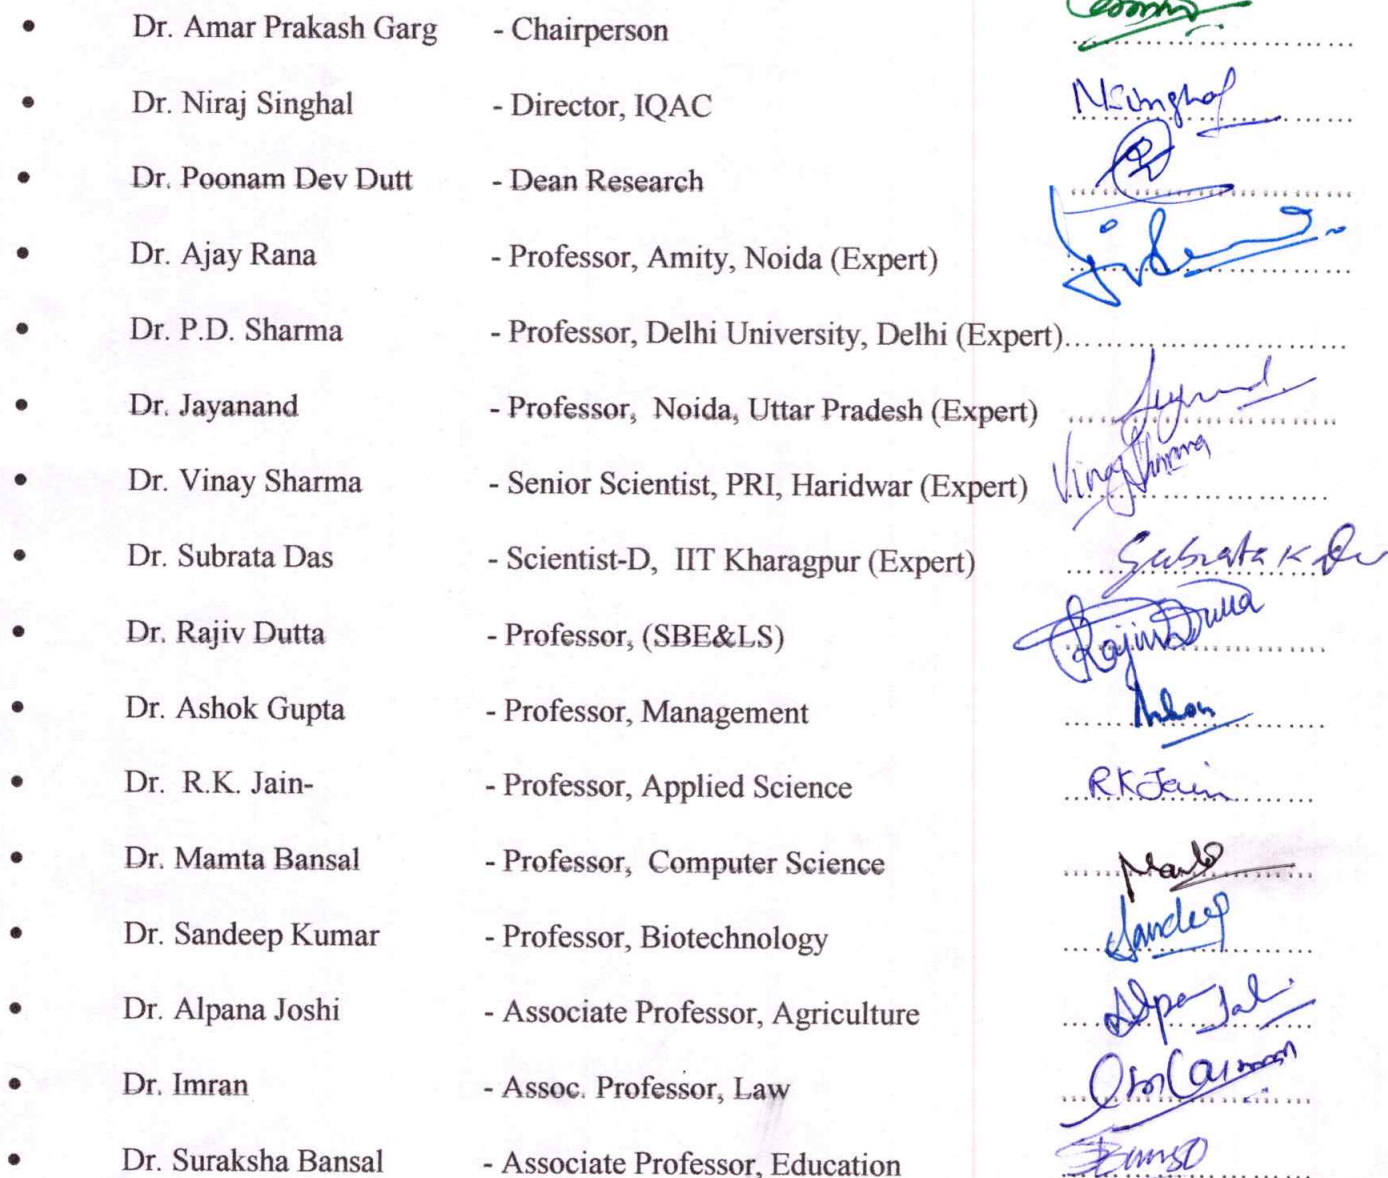 • Dr. Amar Prakash Garg - Chairperson ..............................
• Dr. Niraj Singhal - Director, IQAC NSinghal
• Dr. Poonam Dev Dutt - Dean Research ..............................
• Dr. Ajay Rana - Professor, Amity, Noida (Expert) ..............................
• Dr. P.D. Sharma - Professor, Delhi University, Delhi (Expert)..............................
• Dr. Jayanand - Professor, Noida, Uttar Pradesh (Expert) ..............................
• Dr. Vinay Sharma - Senior Scientist, PRI, Haridwar (Expert) Vinay Sharma
• Dr. Subrata Das - Scientist-D, IIT Kharagpur (Expert) Subrata K
• Dr. Rajiv Dutta - Professor, (SBE&LS) Rajiv Dutta
• Dr. Ashok Gupta - Professor, Management ..............................
• Dr. R.K. Jain- - Professor, Applied Science RK Jain
• Dr. Mamta Bansal - Professor, Computer Science ..............................
• Dr. Sandeep Kumar - Professor, Biotechnology Sandeep
• Dr. Alpana Joshi - Associate Professor, Agriculture ..............................
• Dr. Imran - Assoc. Professor, Law ..............................
• Dr. Suraksha Bansal - Associate Professor, Education ..............................